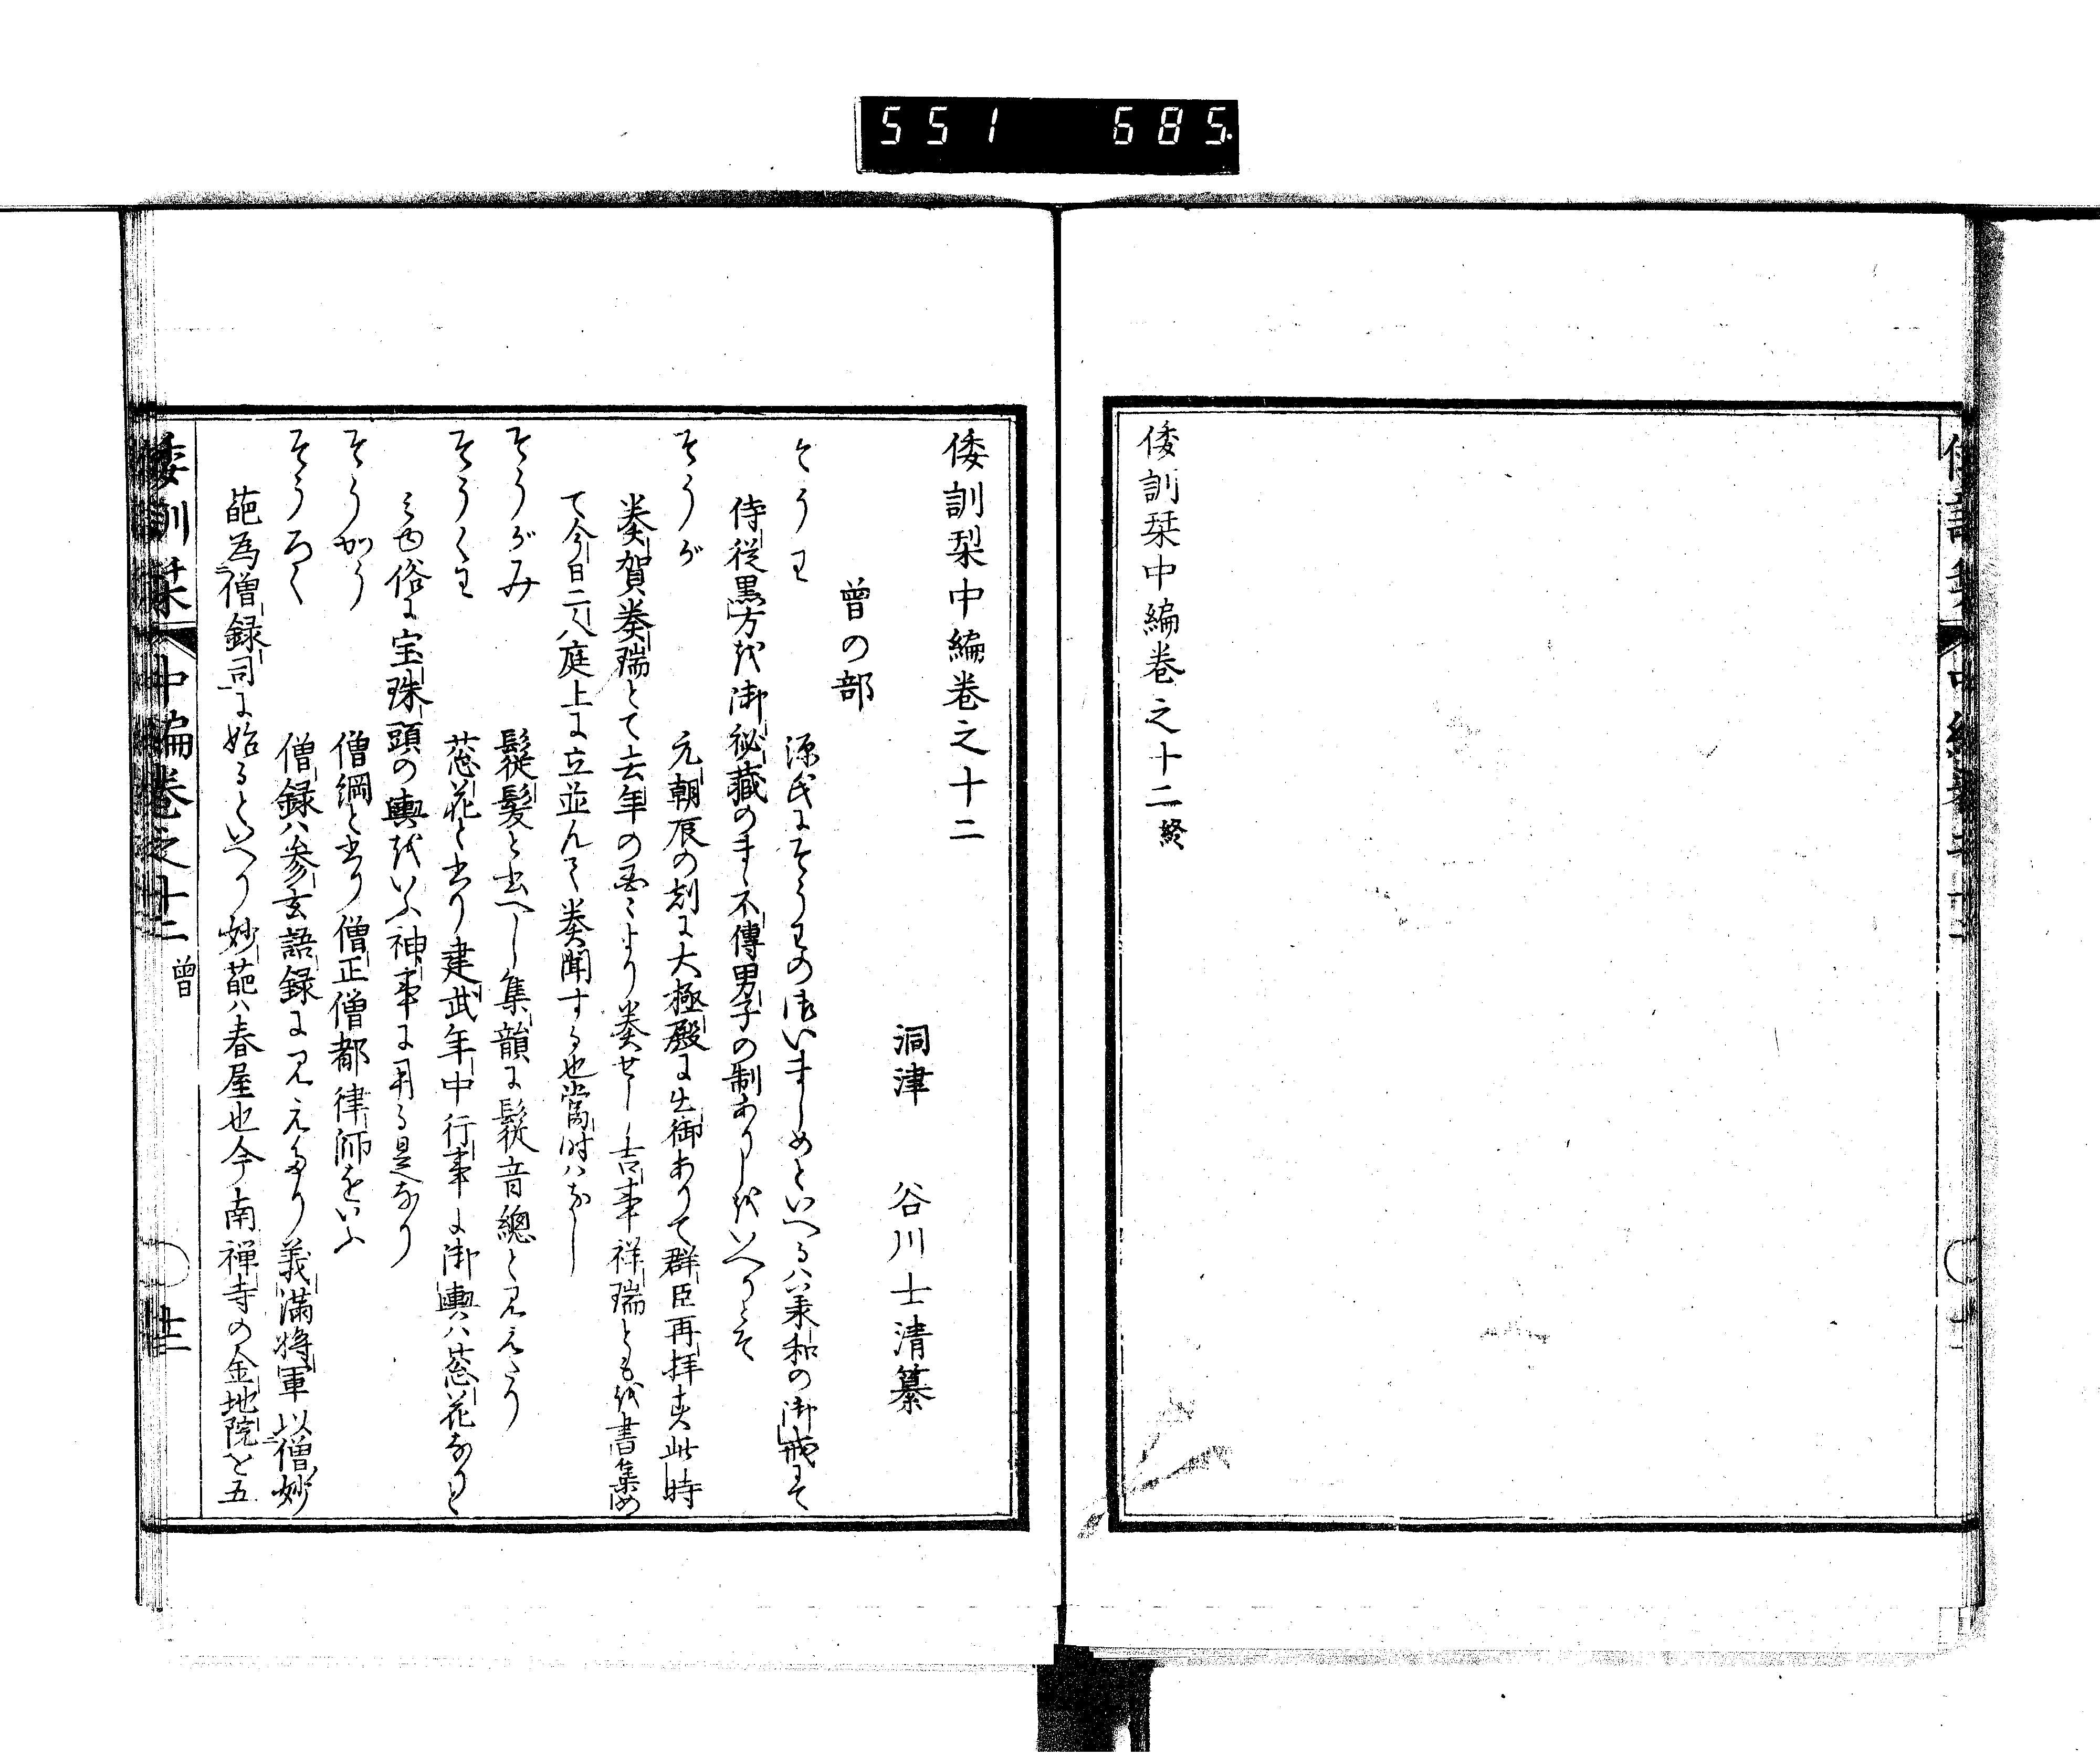 551 685
倭訓栞中編巻之十二終
倭訓栞中編巻之十二
洞津 谷川士清纂
曾の部
そうわ 源氏にそうわの御いましめといへるハ承和の御戒にて
侍従黒方を御秘蔵のまゝ不傳男子の制ありしをいへりとそ
そうが 元朝辰の刻に大極殿に出御ありて群臣再拝す此時
奏賀奏瑞とて去年の国々より奏せし吉事祥瑞ともを書集め
て今日二人庭上に立並んて奏聞する也當時ハなし
そうがみ 鬆髪と書へし集韻に鬆音總と見えたり
そうくわ 葱花と書り建武年中行事に御輿ハ葱花なりと
みゆ俗に宝珠頭の輿をいふ神事に用る是なり
そうかう 僧綱と書り僧正僧都律師をいふ
そうろく 僧録ハ参玄語録に見えたり義満将軍以僧妙
葩為僧録司に始るといへり妙葩ハ春屋也今南禅寺の金地院を五
倭訓栞 中編巻之十二 曾 廿二